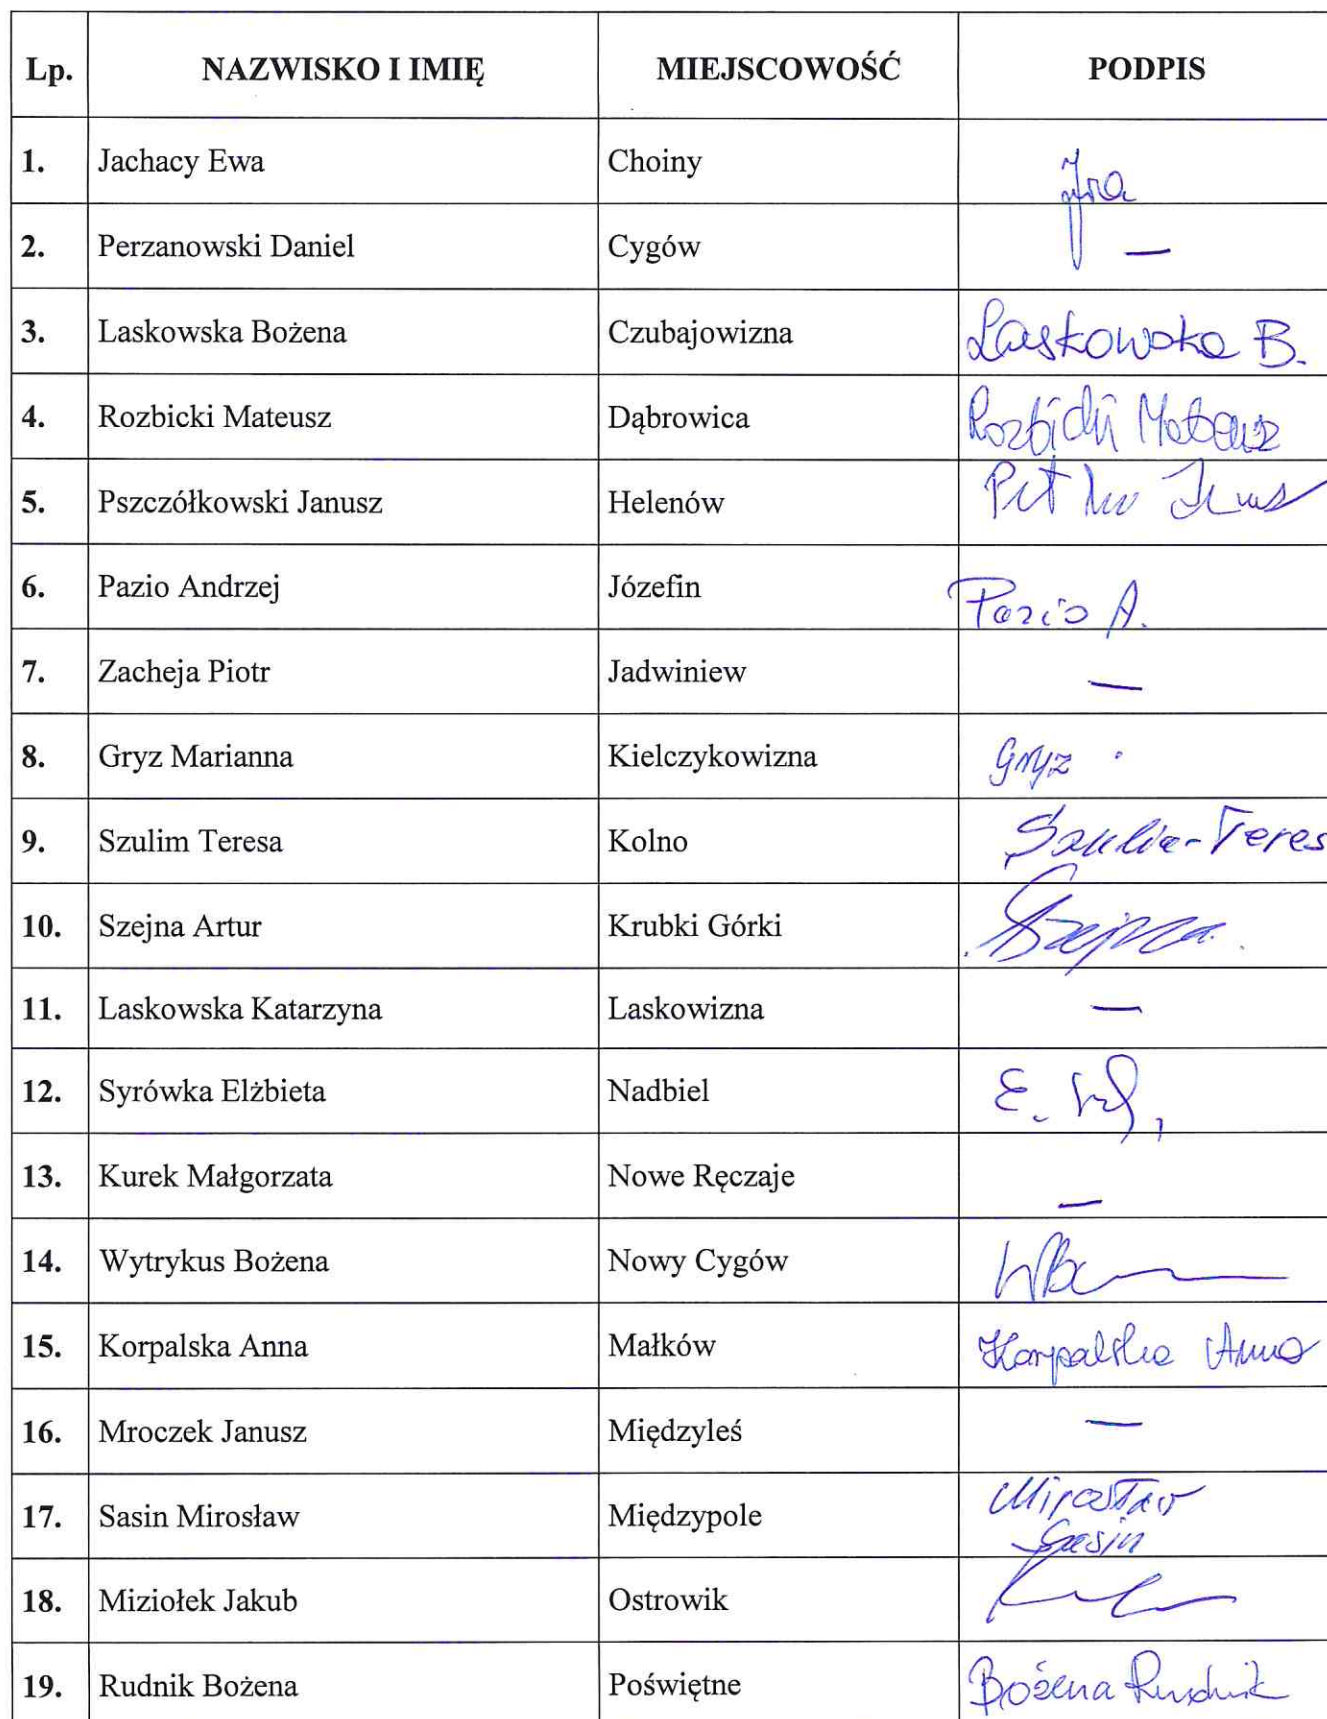 Lp. NAZWISKO I IMIĘ MIEJSCOWOŚĆ PODPIS
1. Jachacy Ewa Choiny
2. Perzanowski Daniel Cygów —
3. Laskowska Bożena Czubajowizna Laskowska B.
4. Rozbicki Mateusz Dąbrowica Rozbicki Mateusz
5. Pszczółkowski Janusz Helenów
6. Pazio Andrzej Józefin Pazio A.
7. Zacheja Piotr Jadwiniew —
8. Gryz Marianna Kielczykowizna Gryz
9. Szulim Teresa Kolno Szulim Teres
10. Szejna Artur Krubki Górki Szejna
11. Laskowska Katarzyna Laskowizna —
12. Syrówka Elżbieta Nadbiel E.
13. Kurek Małgorzata Nowe Ręczaje —
14. Wytrykus Bożena Nowy Cygów
15. Korpalska Anna Małków Korpalska Anna
16. Mroczek Janusz Międzyleś —
17. Sasin Mirosław Międzypole Mirosław
Sasin
18. Miziołek Jakub Ostrowik
19. Rudnik Bożena Poświętne Bożena Rudnik